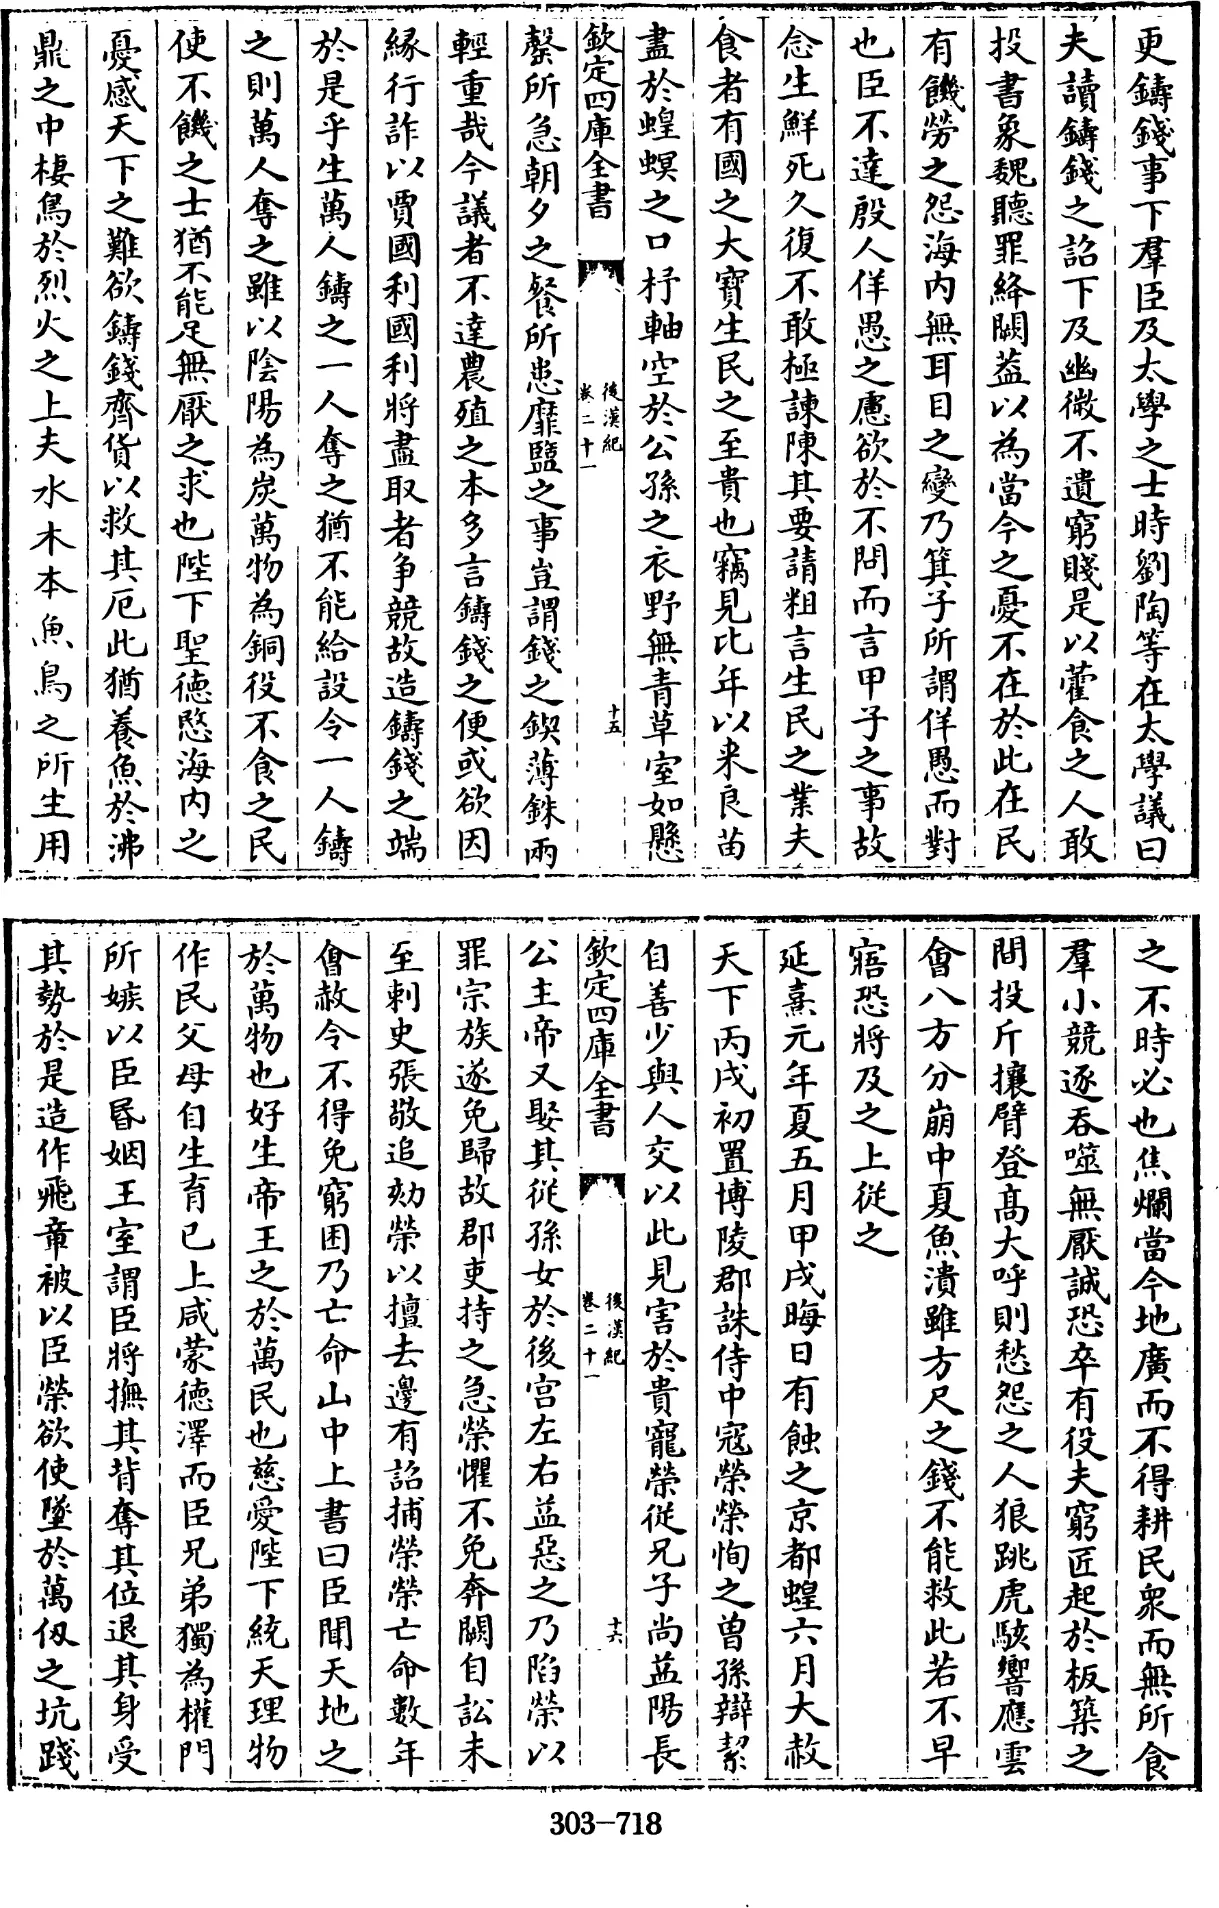 更鑄錢事下羣臣及太學之士時劉陶等在太學議曰
夫讀鑄錢之詔下及幽微不遺窮賤是以藿食之人敢
投書象魏聽罪絳闕葢以為當今之憂不在於此在民
有饑勞之怨海内無耳目之變乃箕子所謂佯愚而對
也臣不達殷人佯愚之慮欲於不問而言甲子之事故
念生鮮死久復不敢極諫陳其要請粗言生民之業夫
食者有國之大寳生民之至貴也竊見比年以来良苗
盡於蝗螟之口杼軸空於公孫之衣野無青草室如懸
欽定四庫全書
後漢紀
卷二十一
十五
罄所急朝夕之餐所患靡鹽之事豈謂錢之鍥薄銖兩
輕重哉今議者不達農殖之本多言鑄錢之便或欲因
緣行詐以賈國利國利將盡取者争競故造鑄錢之端
於是乎生萬人鑄之一人奪之猶不能給設令一人鑄
之則萬人奪之雖以陰陽為炭萬物為銅役不食之民
使不饑之士猶不能足無厭之求也陛下聖徳愍海内之
憂感天下之難欲鑄錢齊貨以救其厄此猶養魚於沸
鼎之中棲鳥於烈火之上夫水木本魚鳥之所生用
之不時必也焦爛當今地廣而不得耕民衆而無所食
羣小競逐吞噬無厭誠恐卒有役夫窮匠起於板築之
間投斤攘臂登髙大呼則愁怨之人狼跳虎駭響應雲
會八方分崩中夏魚潰雖方尺之錢不能救此若不早
寤恐將及之上從之
延熹元年夏五月甲戌晦日有蝕之京都蝗六月大赦
天下丙戌初置博陵郡誅侍中冦榮榮恂之曽孫辯絜
自善少與人交以此見害於貴寵榮從兄子尚益陽長
欽定四庫全書
後漢紀
卷二十一
十六
公主帝又娶其從孫女於後宫左右益惡之乃陷榮以
罪宗族遂免歸故郡吏持之急榮懼不免奔闕自訟未
至刺史張敬追劾榮以擅去邊有詔捕榮榮亡命數年
會赦令不得免窮困乃亡命山中上書曰臣聞天地之
於萬物也好生帝王之於萬民也慈愛陛下統天理物
作民父母自生育已上咸蒙徳澤而臣兄弟獨為權門
所嫉以臣昬姻王室謂臣將撫其背奪其位退其身受
其勢於是造作飛章被以臣榮欲使墜於萬仭之坑踐
303-718